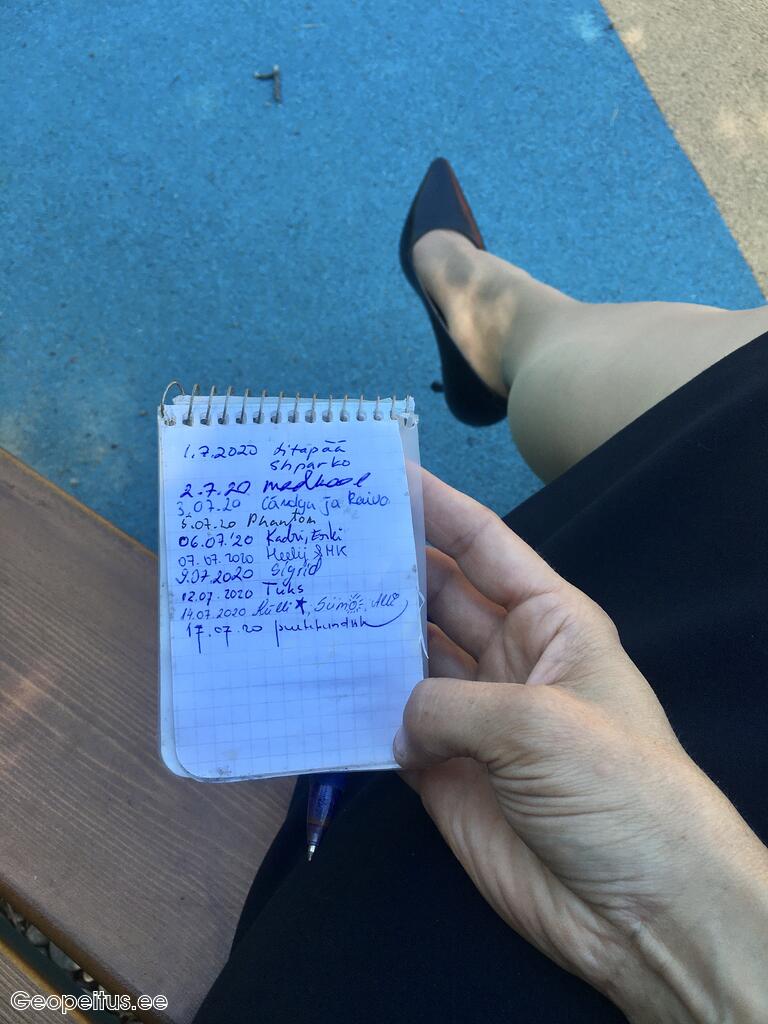 1.7.2020 sitapää
shparko
2.7.20 madkool
3.07.20 Cärolyn ja Raivo
5.07.20 Phantom
06.07.'20 Kadri, Erki
07.07.2020 Meelij & MK
9.07.2020 Sigrid
12.07.2020 Tuks
14.07.2020 Külli★, Sumo, Alli
17.07.20
Geopeitus.ee